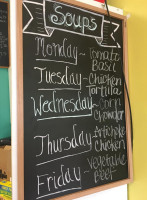 Soups
Monday - Tomato
Basil
Tuesday - Chicken
Tortilla
Wednesday - Corn
Chowder
Thursday - Artichoke
Chicken
Friday - Vegetable
Beef